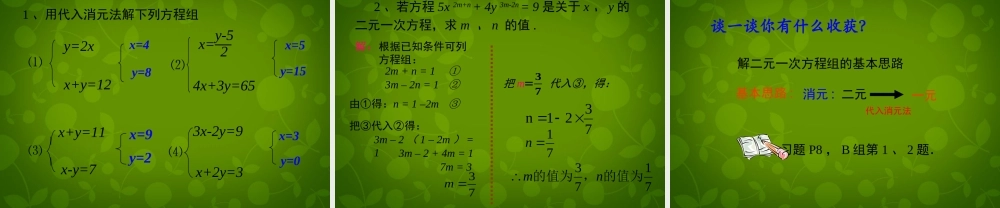 1 、用代入消元法解下列方程组
⑴ y=2x
x+y=12
x=4
y=8
⑵ x=y-5/2
4x+3y=65
x=5
y=15
⑶ x+y=11
x-y=7
x=9
y=2
⑷ 3x-2y=9
x+2y=3
x=3
y=0
2 、若方程 5x 2m+n + 4y 3m-2n = 9 是关于 x ， y 的
二元一次方程，求 m 、 n 的值 .
根据已知条件可列
方程组：
2m + n = 1 ①
3m – 2n = 1 ②
由①得：n = 1 –2m ③
把③代入②得：
3m – 2 （ 1 – 2m ） =
1 3m – 2 + 4m = 1
7m = 3
m = 3/7
把 m= 3/7 代入③，得：
n = 1 - 2 × 3/7
n = 1/7
∴m的值为3/7，n的值为1/7
谈一谈你有什么收获?
解二元一次方程组的基本思路
基本思路: 消元 : 二元 一元
代入消元法
习题 P8 ， B 组第 1 、 2 题．